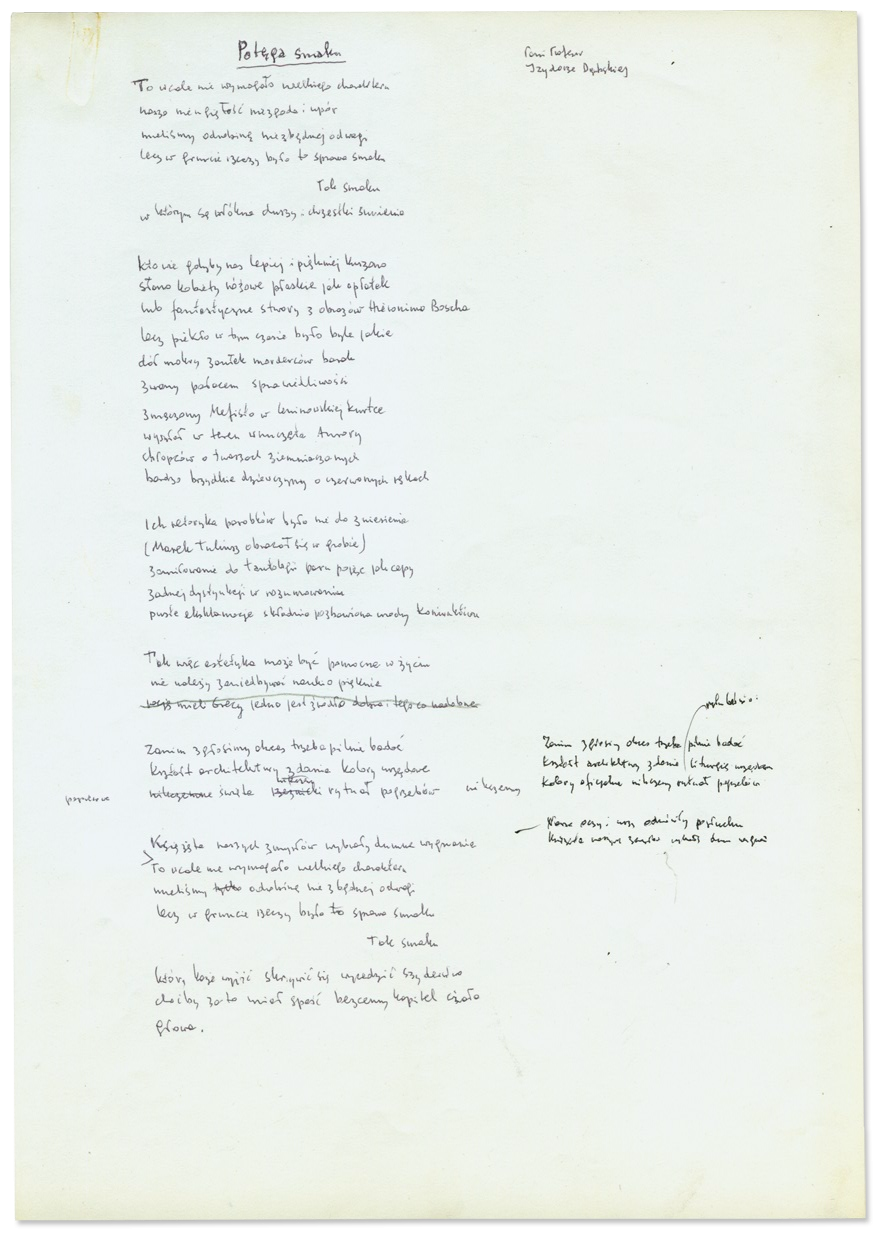 Potęga smaku
Pani Profesor
Izydorze Dąmbskiej
To wcale nie wymagało wielkiego charakteru
nasza niengiętość niezgoda i upór
mieliśmy odrobinę niezbędnej odwagi
lecz w gruncie rzeczy była to sprawa smaku
Tak smaku
w którym są włókna duszy i chrząstki sumienia
kto wie gdyby nas lepiej i piękniej kuszono
słano kobiety różowe płaskie jak opłatek
lub fantastyczne stwory z obrazów Hieronima Boscha
lecz piekło w tym czasie było byle jakie
dół mokry zaułek morderców barak
zwany pałacem sprawiedliwości
zmęczony Mefisto w leninowskiej kurtce
wysyłał w teren wnuczęta Aurory
chłopców o twarzach ziemniaczanych
bardzo brzydkie dziewczyny o czerwonych rękach
Ich retoryka parobków była nie do zniesienia
(Marek Tulliusz obracał się w grobie)
zamiłowanie do tautologii parę pojęć jak cepy
żadnej dystynkcji w rozumowaniu
puste eksklamacje składnia pozbawiona urody koniunktiwu
Tak więc estetyka może być pomocna w życiu
nie należy zaniedbywać nauki o pięknie
mieli Grecy jedno jest źródło dobra i tego co nadobne
Zanim zgłosimy akces trzeba pilnie badać
kształt architektury zdania kolory urzędowe
nikczemne święta rytuał pogrzebów nikczemny
Zanim zgłosimy akces trzeba pilnie badać
kształt architektury zdania liturgię urzędów
kolory oficjalne nikczemny rytuał pogrzebów
Nasze oczy i uszy odmówiły posłuchu
książęta naszych zmysłów wybrały dumne wygnanie
Książęta naszych zmysłów wybrały dumne wygnanie
To wcale nie wymagało wielkiego charakteru
mieliśmy tylko odrobinę niezbędnej odwagi
lecz w gruncie rzeczy była to sprawa smaku
Tak smaku
który każe wyjść skrzywić się wycedzić szyderstwo
choćby za to miał spaść bezcenny kapitel ciała
głowa.